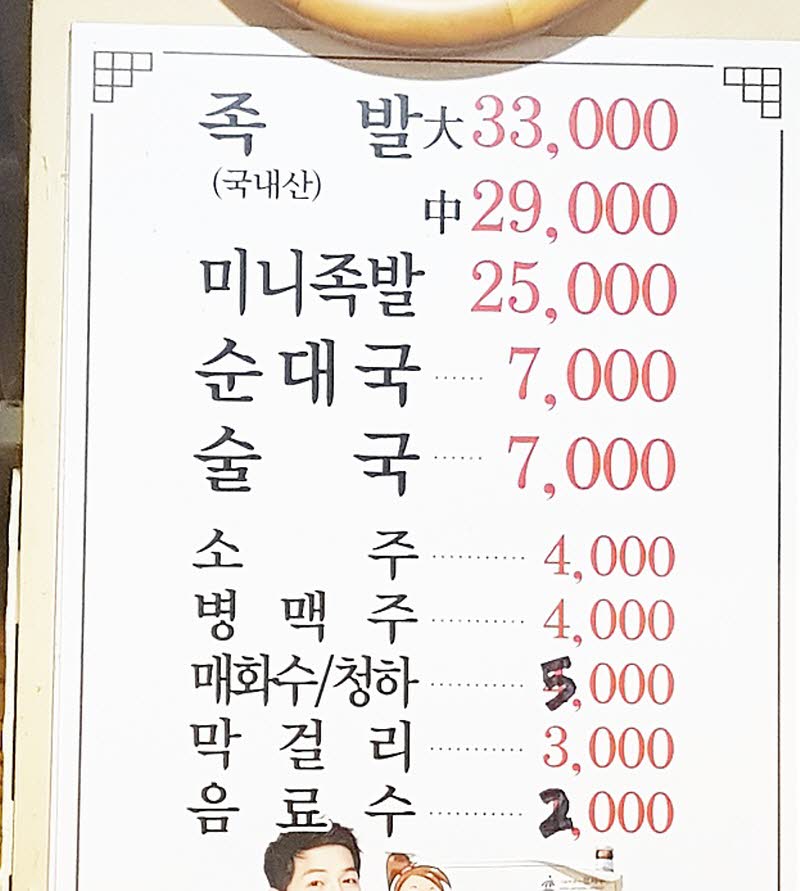 족 발 大 33,000
(국내산)
中 29,000
미니족발 25,000
순대국 ······ 7,000
술 국 ······ 7,000
소 주 ··········· 4,000
병 맥 주 ··········· 4,000
매화수/청하 ··········· 5,000
막 걸 리 ··········· 3,000
음 료 수 ··········· 2,000